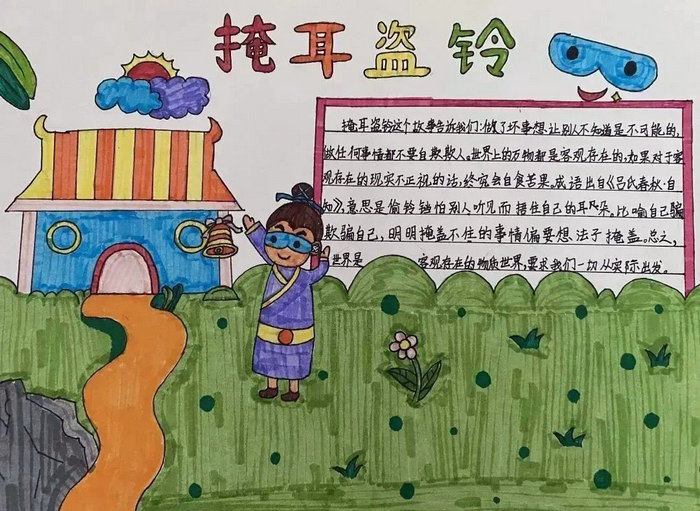 掩耳盗铃
掩耳盗铃这个故事告诉我们:做了坏事想让别人不知道是不可能的,
做任何事情都不要自欺欺人。世界上的万物都是客观存在的,如果对于客
观存在的现实不正视的话,终究会自食苦果。成语出自《吕氏春秋·自
知》,意思是偷铃铛怕别人听见而捂住自己的耳朵。比喻自己骗
欺骗自己,明明掩盖不住的事情偏要想法子掩盖。总之,
世界是 客观存在的物质世界,要求我们一切从实际出发。